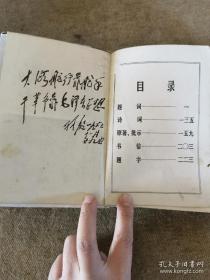 大海航行靠舵手
干革命靠毛泽东思想
目录
题词 一
诗词 一三五
原著、批示 一五九
书信 二〇三
题字 二二三
孔夫子旧书网